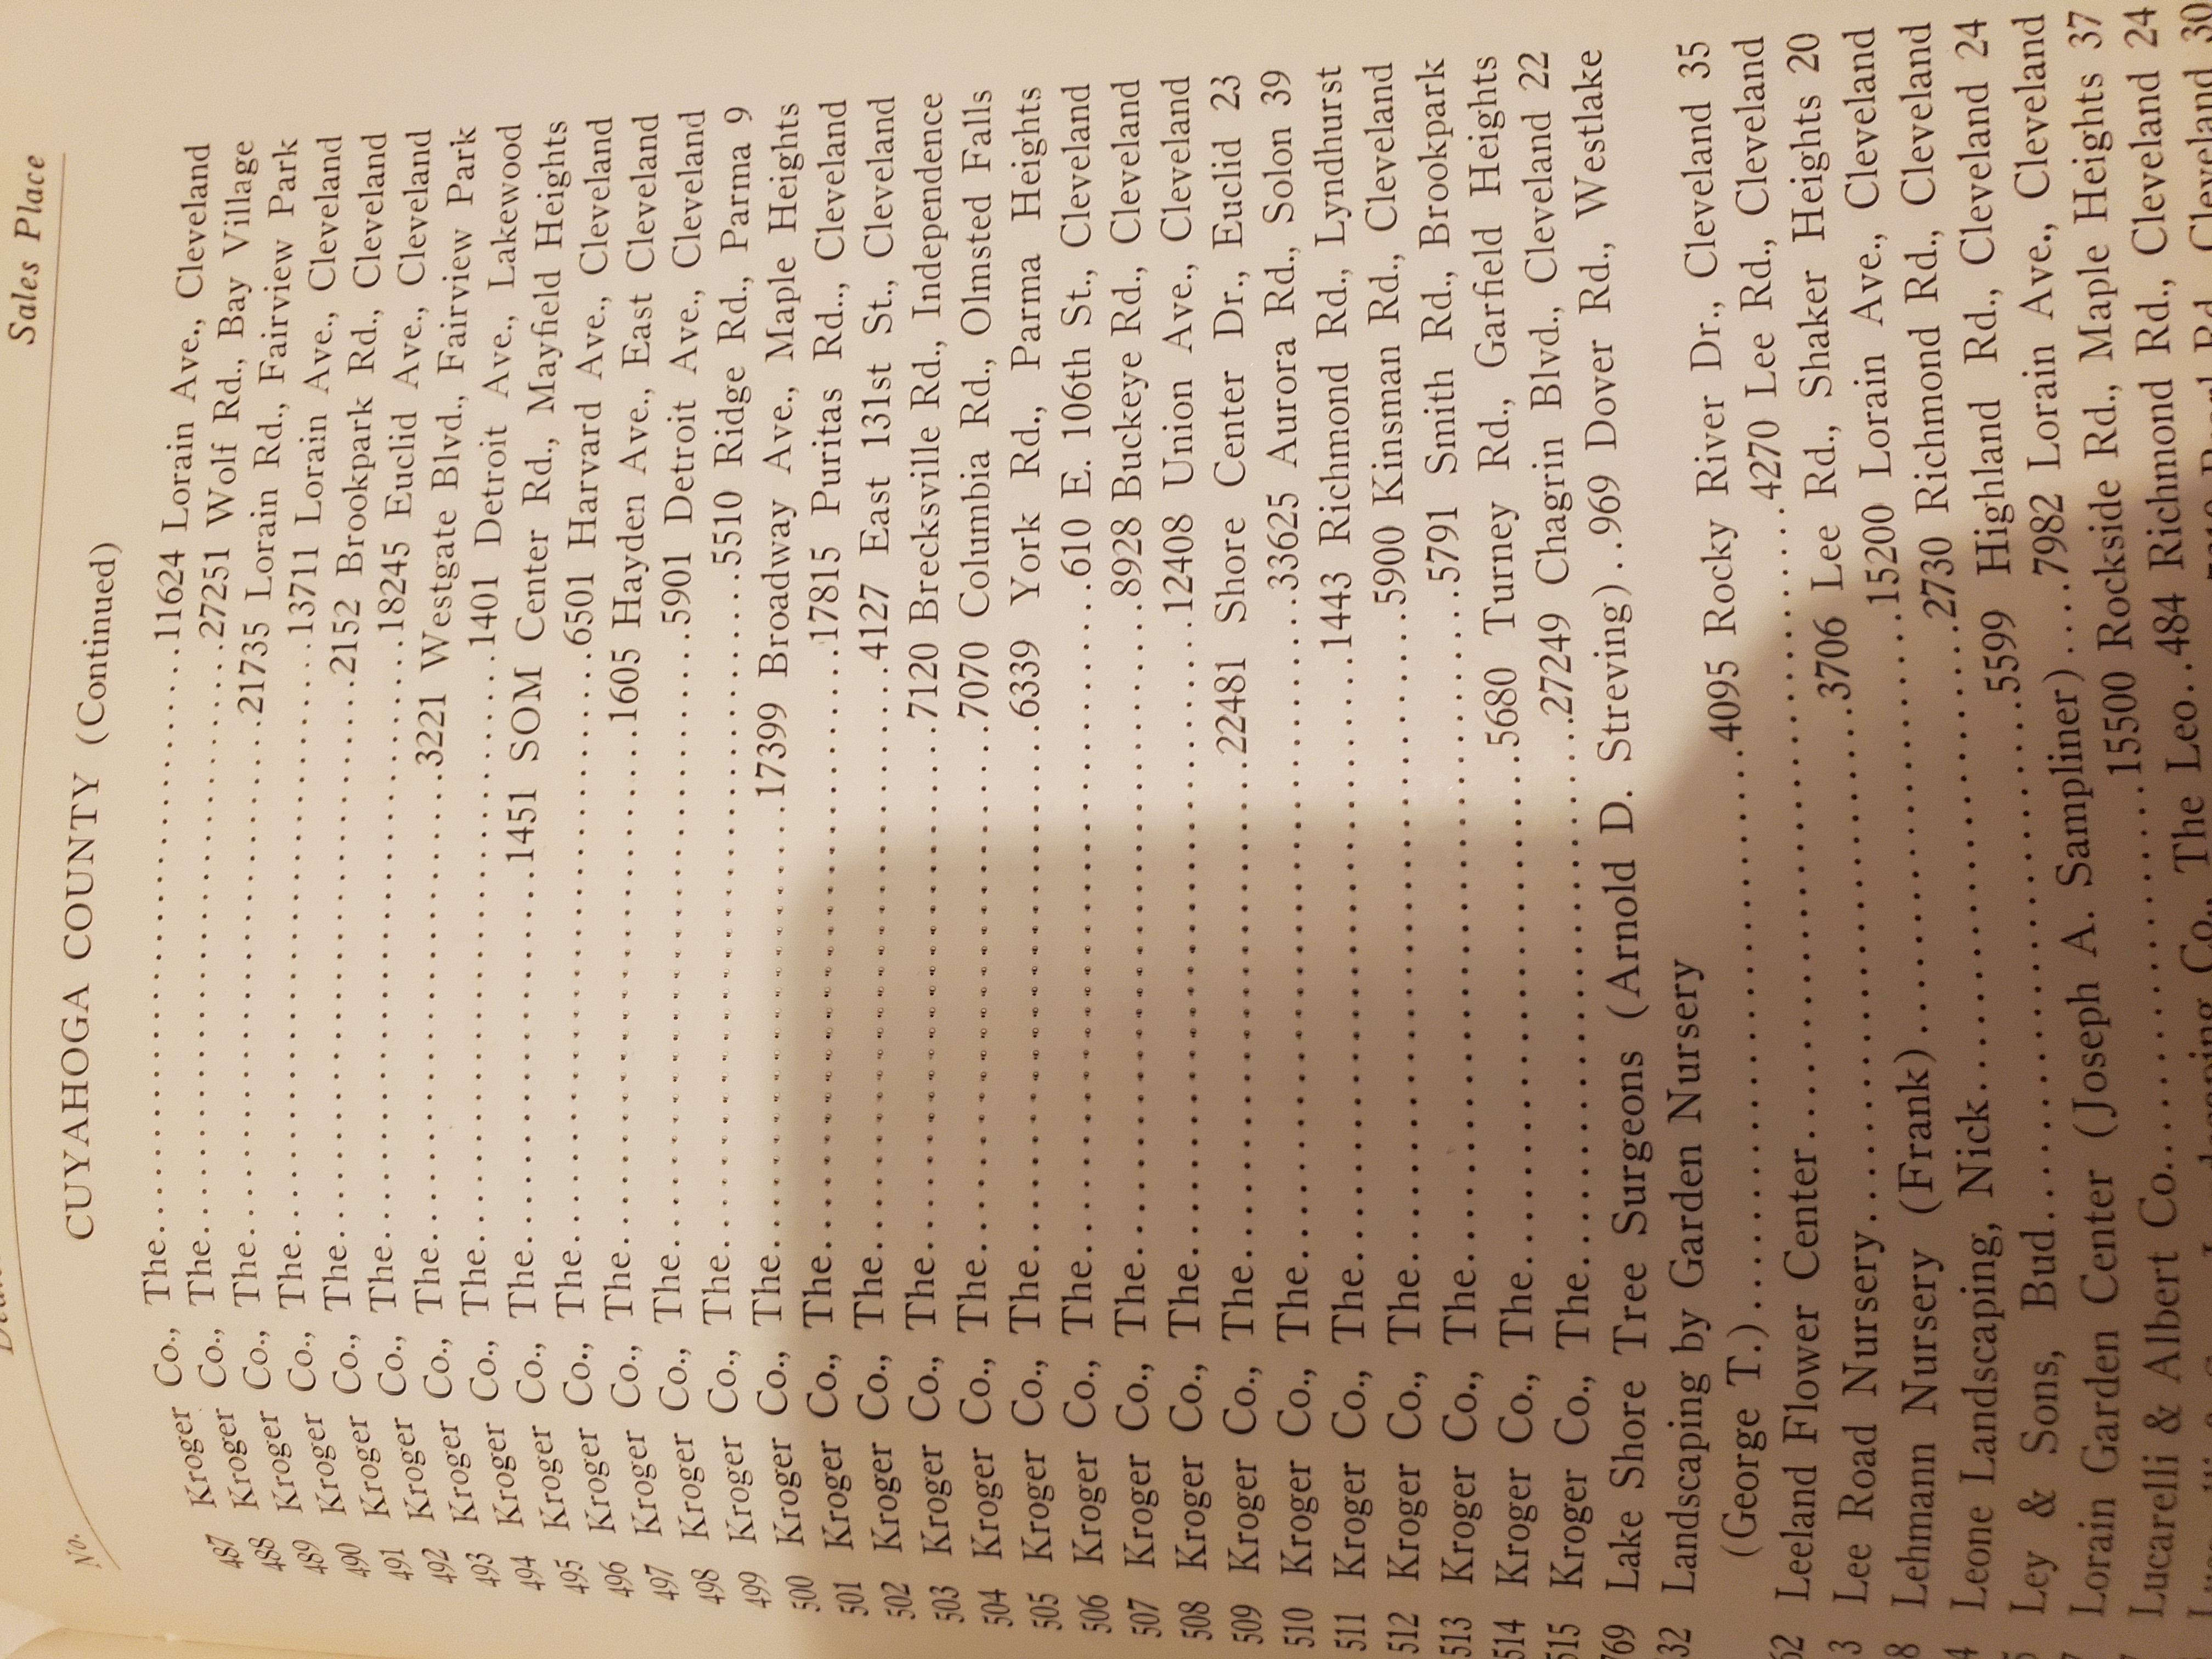 No. Sales Place
CUYAHOGA COUNTY (Continued)
487 Kroger Co., The....................11624 Lorain Ave., Cleveland
488 Kroger Co., The....................27251 Wolf Rd., Bay Village
489 Kroger Co., The....................21735 Lorain Rd., Fairview Park
490 Kroger Co., The....................13711 Lorain Ave., Cleveland
491 Kroger Co., The....................2152 Brookpark Rd., Cleveland
492 Kroger Co., The....................18245 Euclid Ave., Cleveland
493 Kroger Co., The....................3221 Westgate Blvd., Fairview Park
494 Kroger Co., The....................1401 Detroit Ave., Lakewood
495 Kroger Co., The....................1451 SOM Center Rd., Mayfield Heights
496 Kroger Co., The....................6501 Harvard Ave., Cleveland
497 Kroger Co., The....................1605 Hayden Ave., East Cleveland
498 Kroger Co., The....................5901 Detroit Ave., Cleveland
499 Kroger Co., The....................5510 Ridge Rd., Parma 9
500 Kroger Co., The....................17399 Broadway Ave., Maple Heights
501 Kroger Co., The....................17815 Puritas Rd.., Cleveland
502 Kroger Co., The....................4127 East 131st St., Cleveland
503 Kroger Co., The....................7120 Brecksville Rd., Independence
504 Kroger Co., The....................7070 Columbia Rd., Olmsted Falls
505 Kroger Co., The....................6339 York Rd., Parma Heights
506 Kroger Co., The....................610 E. 106th St., Cleveland
507 Kroger Co., The....................8928 Buckeye Rd., Cleveland
508 Kroger Co., The....................12408 Union Ave., Cleveland
509 Kroger Co., The....................22481 Shore Center Dr., Euclid 23
510 Kroger Co., The....................33625 Aurora Rd., Solon 39
511 Kroger Co., The....................1443 Richmond Rd., Lyndhurst
512 Kroger Co., The....................5900 Kinsman Rd., Cleveland
513 Kroger Co., The....................5791 Smith Rd., Brookpark
514 Kroger Co., The....................5680 Turney Rd., Garfield Heights
515 Kroger Co., The....................27249 Chagrin Blvd., Cleveland 22
769 Lake Shore Tree Surgeons (Arnold D. Streving)..969 Dover Rd., Westlake
32 Landscaping by Garden Nursery
(George T.)....................4095 Rocky River Dr., Cleveland 35
62 Leeland Flower Center....................4270 Lee Rd., Cleveland
3 Lee Road Nursery....................3706 Lee Rd., Shaker Heights 20
8 Lehmann Nursery (Frank)....................15200 Lorain Ave., Cleveland
4 Leone Landscaping, Nick....................2730 Richmond Rd., Cleveland
Ley & Sons, Bud....................5599 Highland Rd., Cleveland 24
Lorain Garden Center (Joseph A. Sampliner)....7982 Lorain Ave., Cleveland
Lucarelli & Albert Co....................15500 Rockside Rd., Maple Heights 37
Co., The Leo...484 Richmond Rd., Cleveland 24
Rd., Cleveland 30